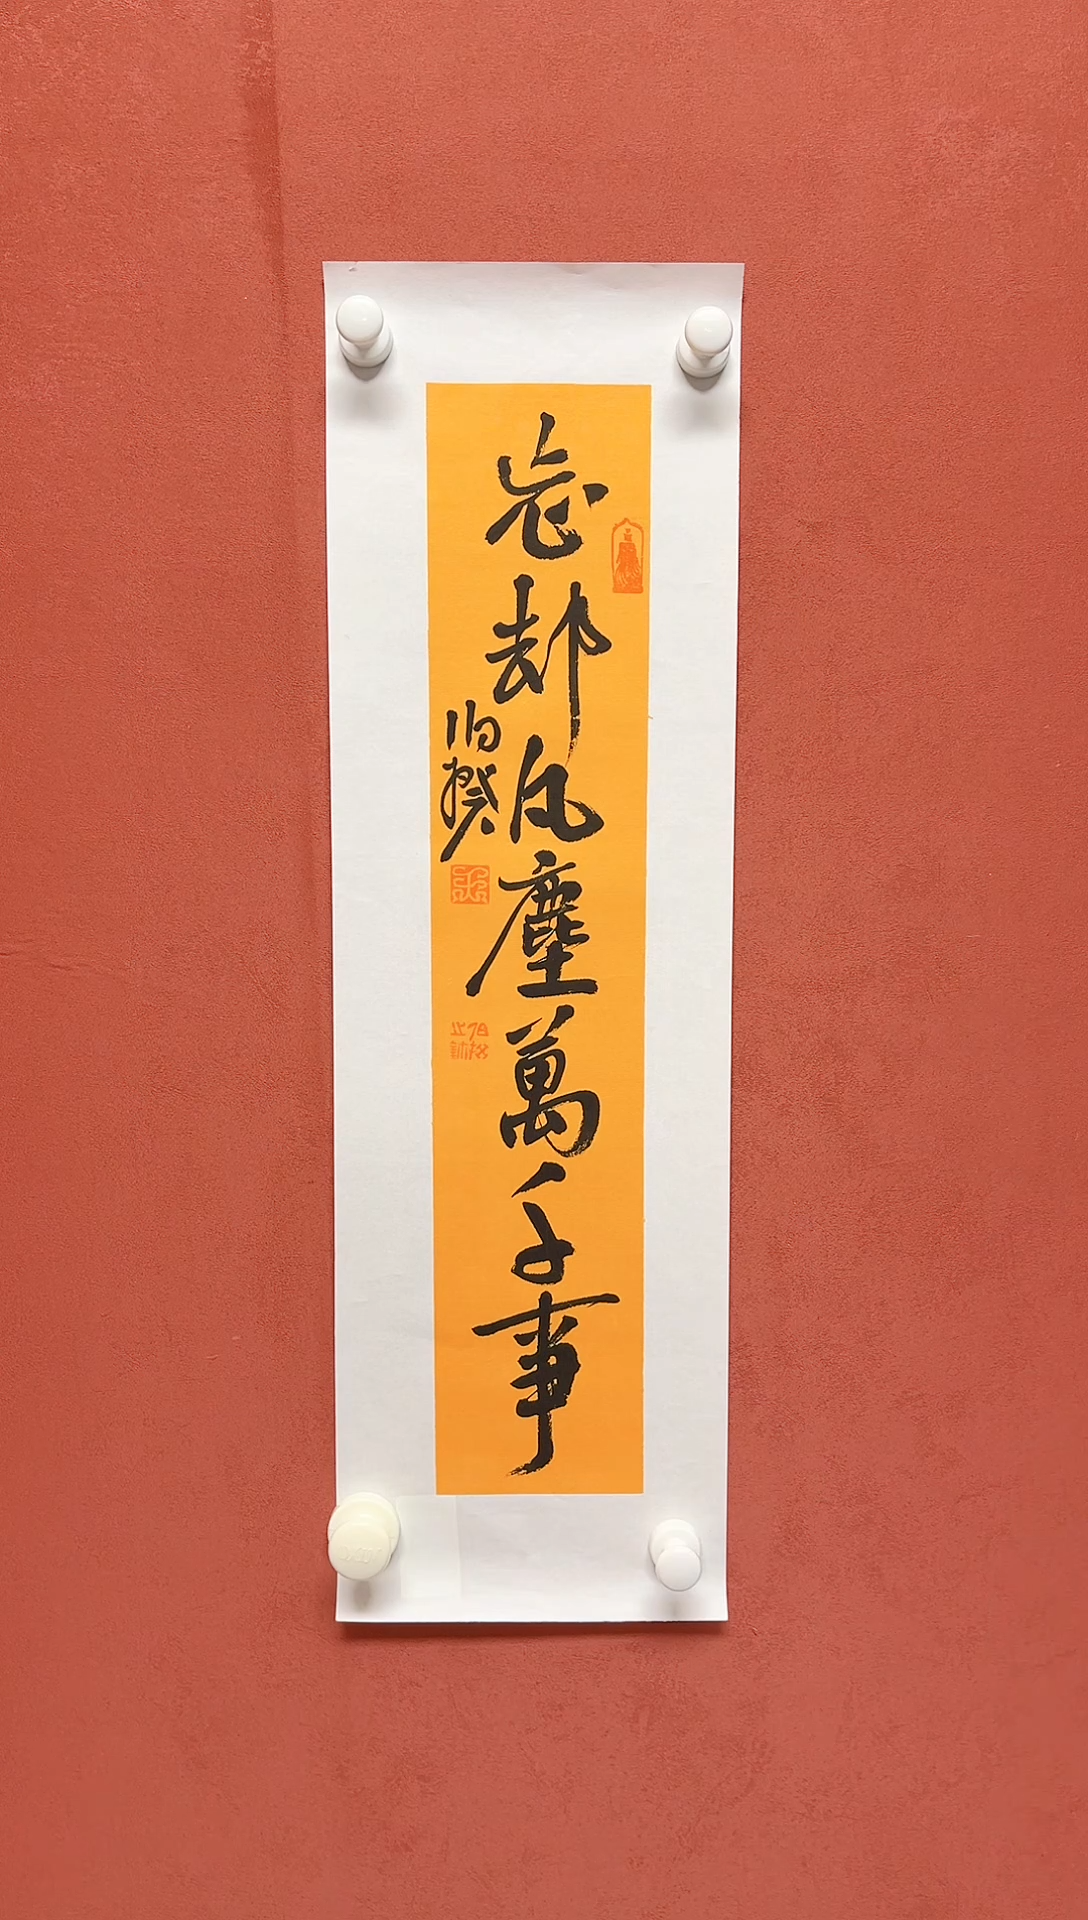 忘却風塵萬千事